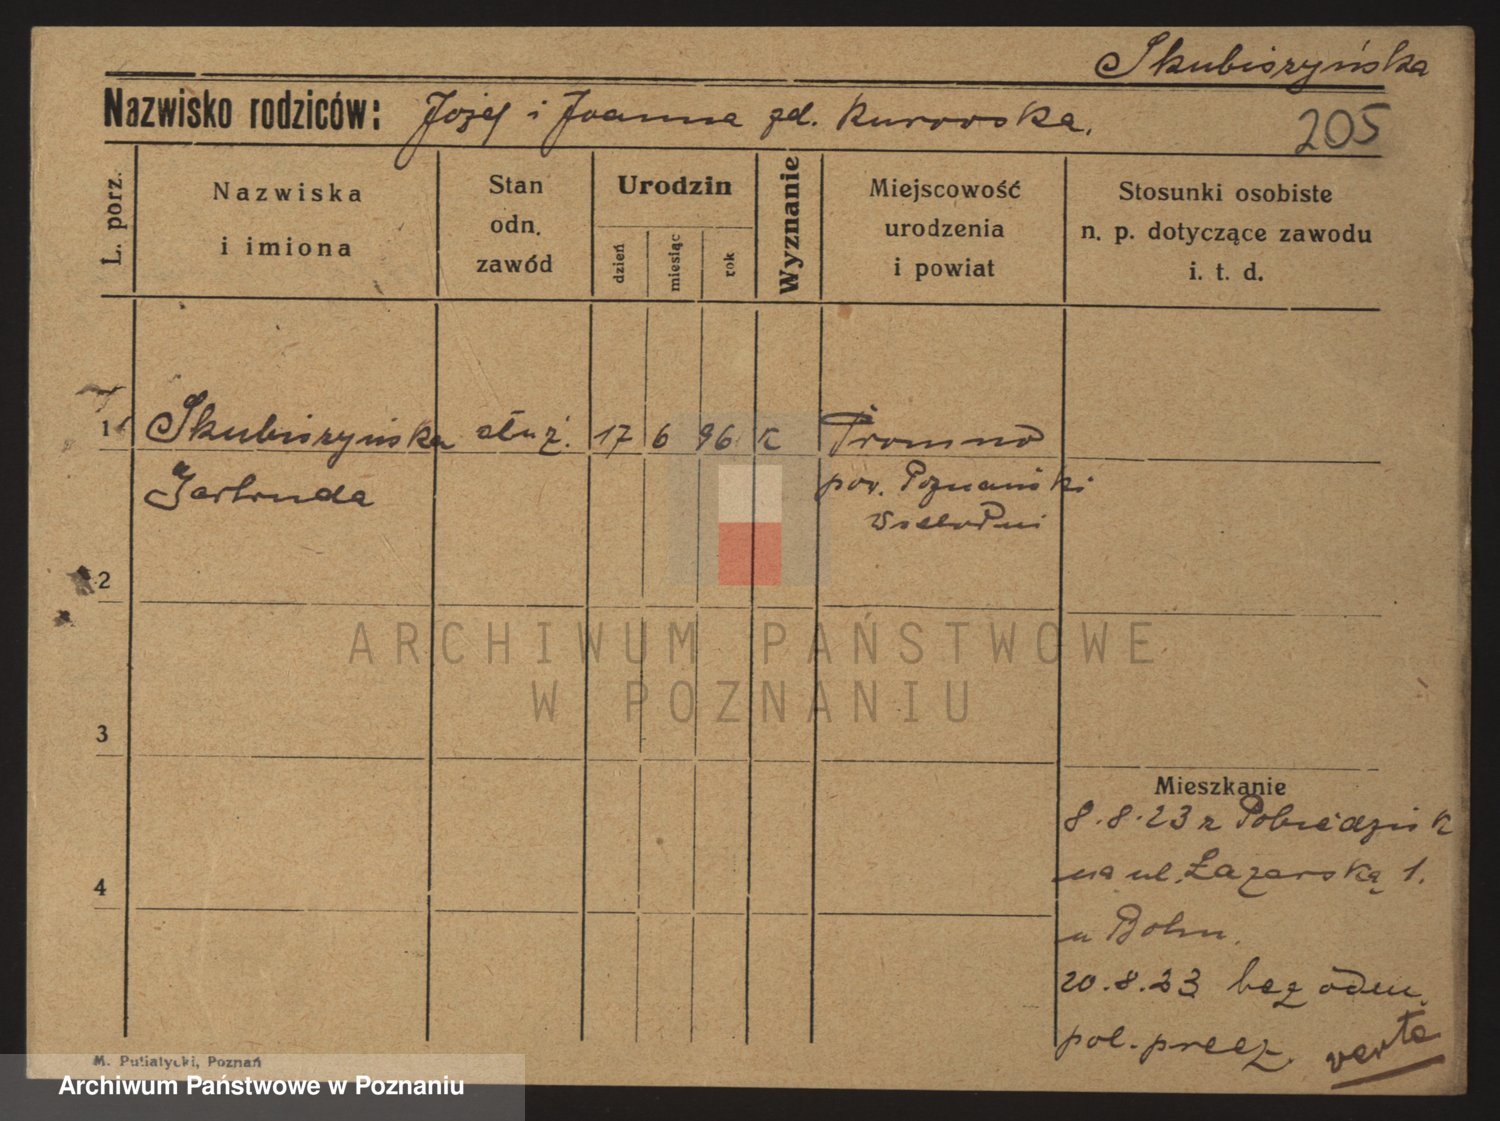 Skubiszyńska
Nazwisko rodziców: Józef i Joanna zd. Kurowska.
205
L. porz.
Nazwiska
i imiona
Stan
odn.
zawód
Urodzin
dzień
miesiąc
rok
Wyznanie
Miejscowość
urodzenia
i powiat
Stosunki osobiste
n. p. dotyczące zawodu
i. t. d.
1 Skubiszyńska służ. 17 6 96 K Promno
Gertruda
pow. Poznański
2
ARCHIWUM PAŃSTWOWE
W POZNANIU
3
Mieszkanie
8.8.23 z Pobiedzisk
na ul. Łazarską 1.
4
u Bohn.
20.8.23 bez odm.
pol. precz.
verte
M. Putiatycki, Poznań
Archiwum Państwowe w Poznaniu